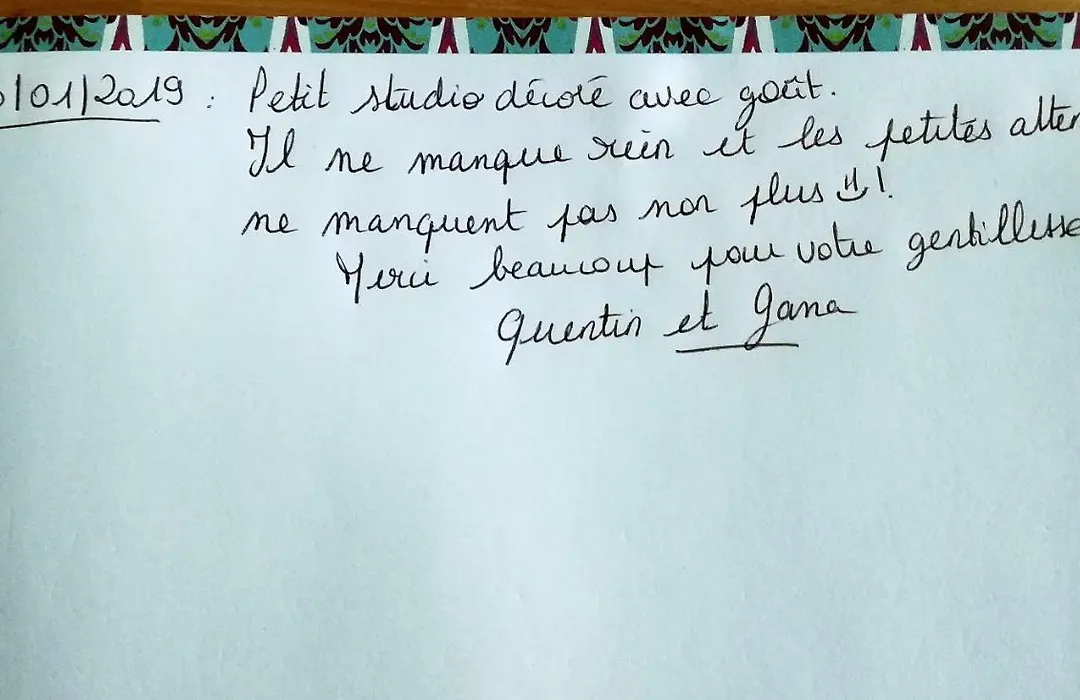 /01/2019 : Petit studio décoré avec goût.
Il ne manque rien et les petites atten
ne manquent pas non plus !
Merci beaucoup pour votre gentillesse
Quentin et Jana